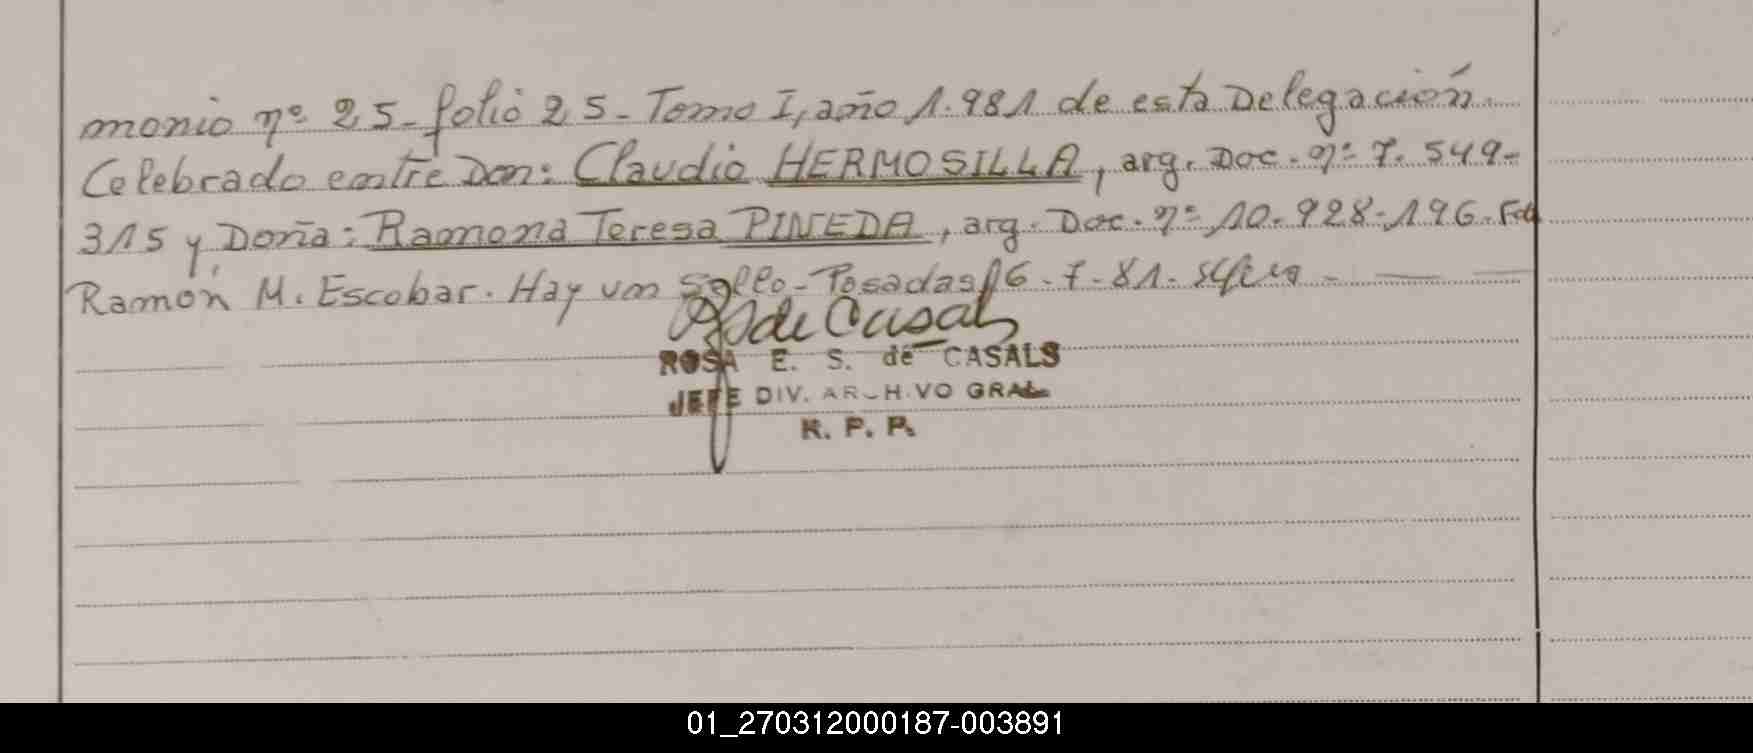 monio nº 25_ folio 25_ Tomo I, año 1.981 de esta Delegación.
Celebrado entre Don: Claudio HERMOSILLA, arg. Doc. nº 7.549-
315 y Doña: Ramona Teresa PINEDA, arg. Doc. nº 10.928.196. Fdo
Ramón M. Escobar. Hay un sello_ Posadas, 16-7-81.
R S de Casals
ROSA E. S. de CASALS
JEFE DIV. ARCHIVO GRAL
R. P. P.
01_270312000187-003891